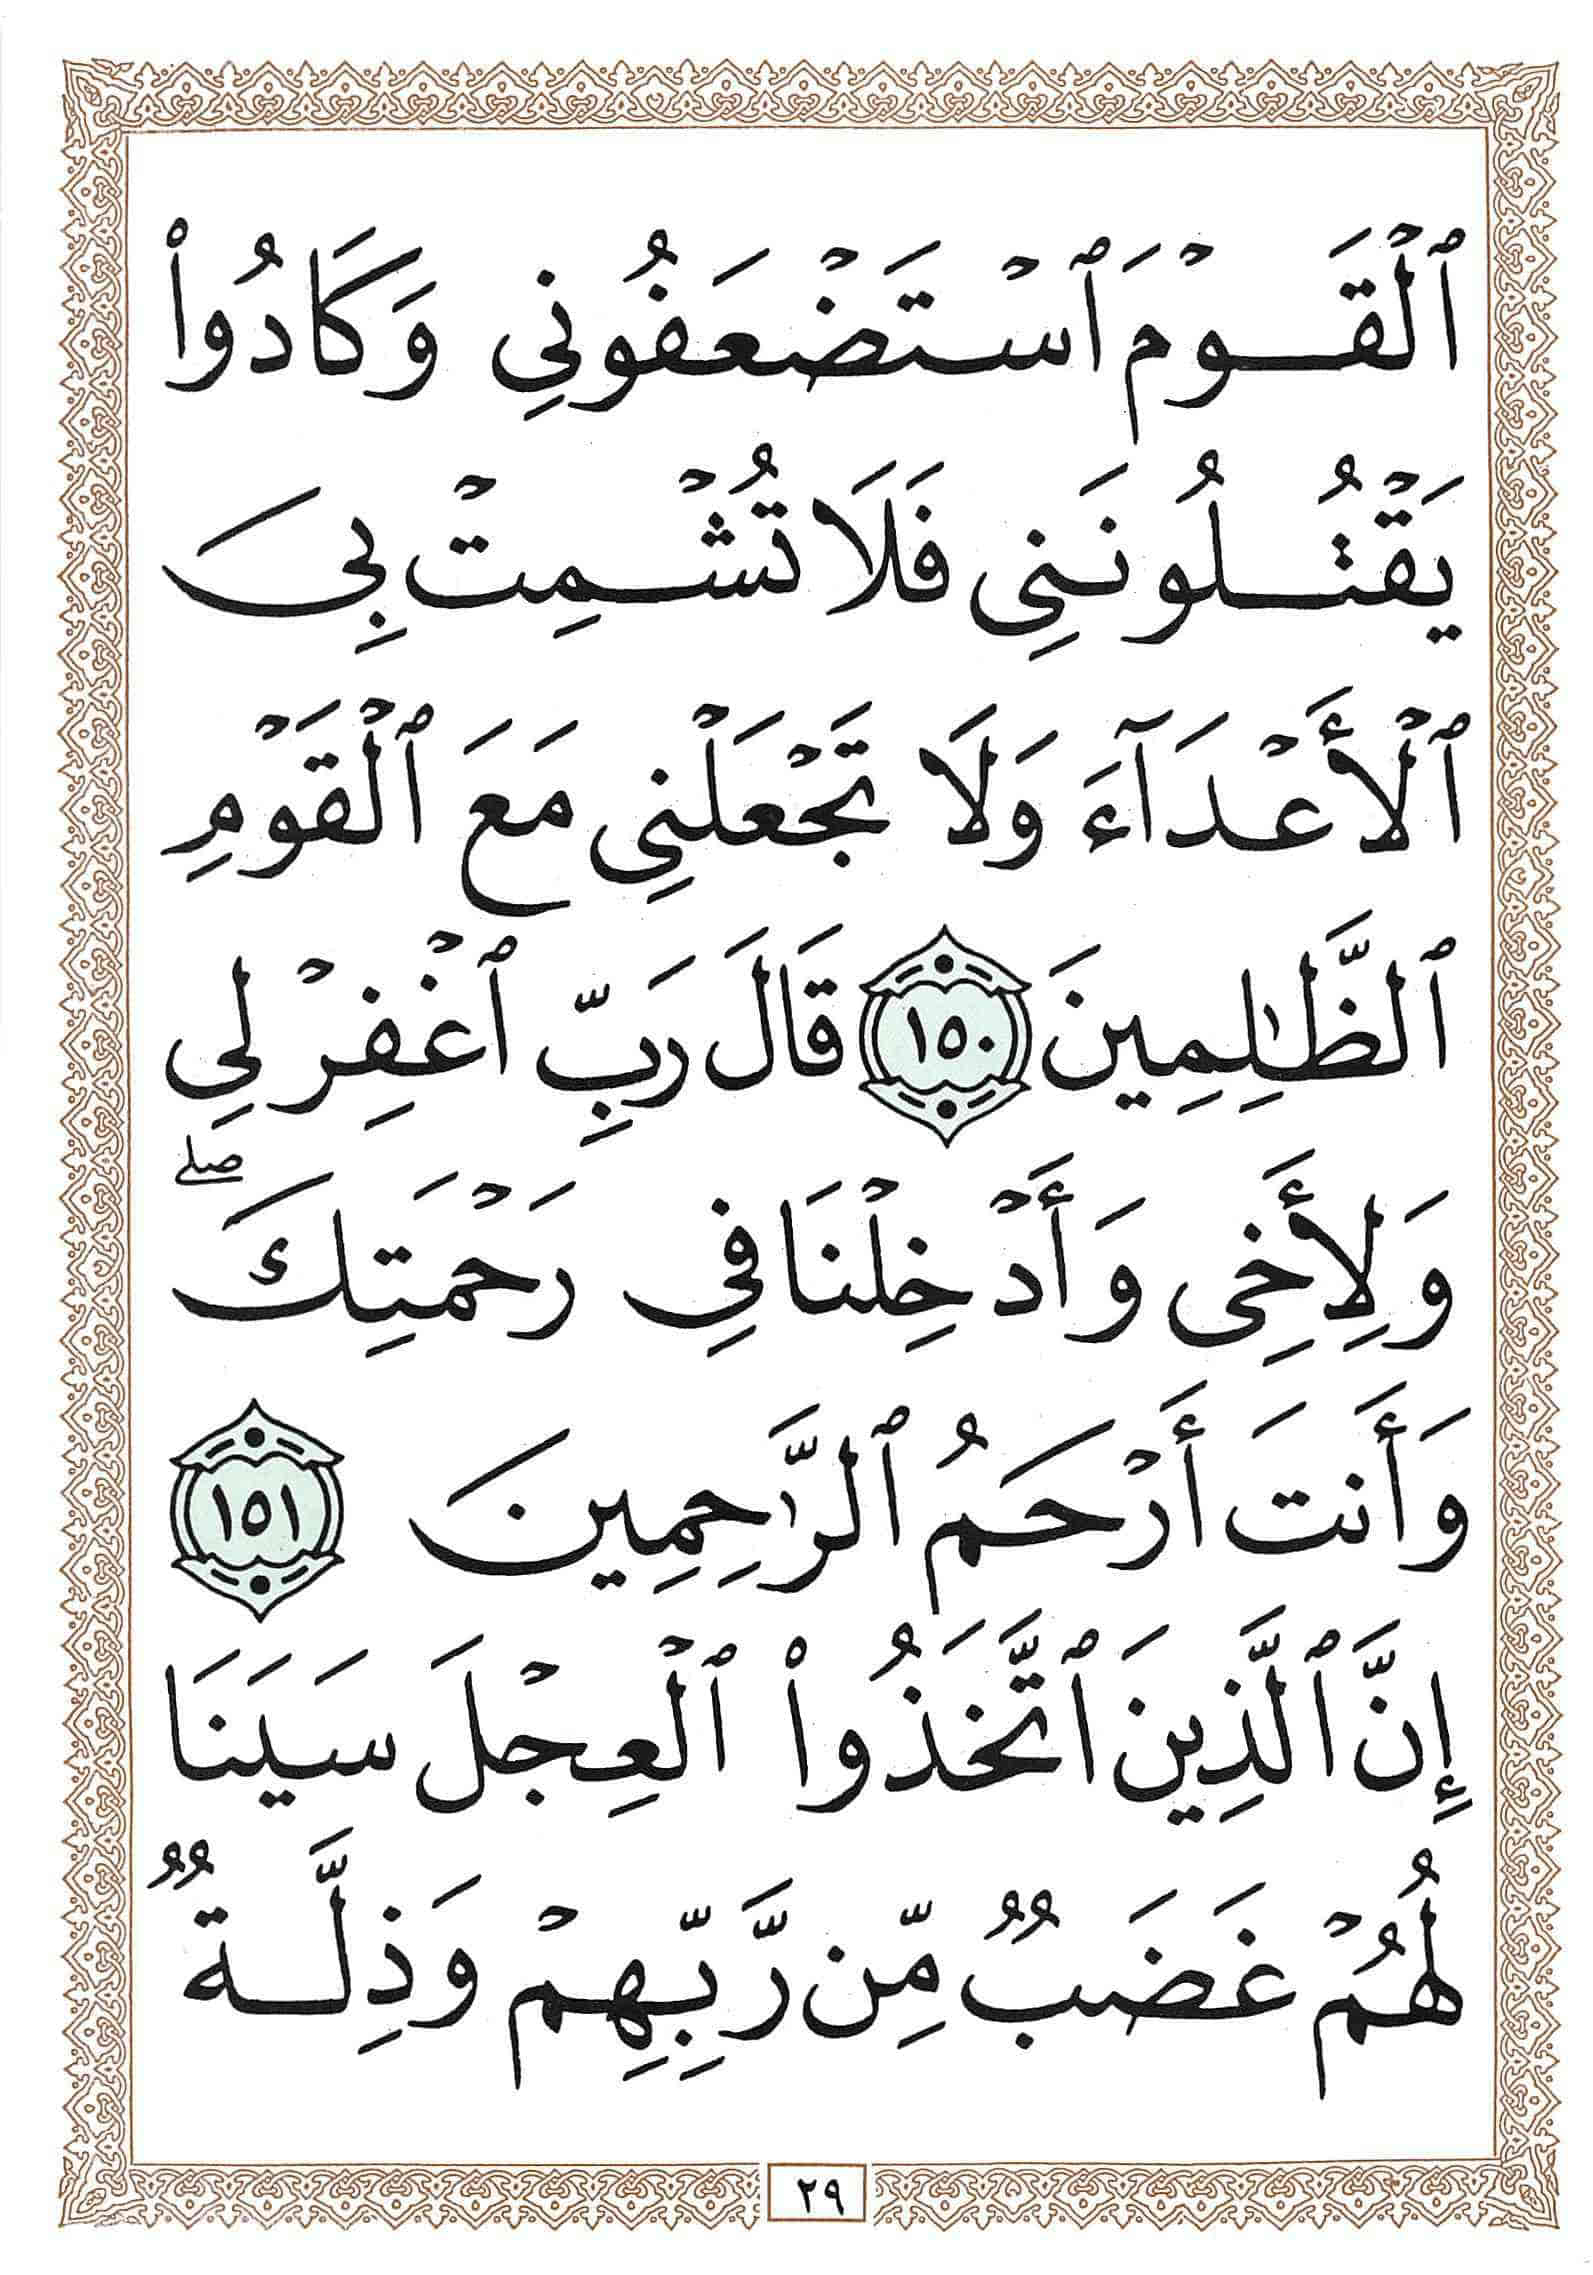 ٱلْقَوْمَ ٱسْتَضْعَفُونِى وَكَادُوا۟
يَقْتُلُونَنِى فَلَا تُشْمِتْ بِىَ
ٱلْأَعْدَآءَ وَلَا تَجْعَلْنِى مَعَ ٱلْقَوْمِ
ٱلظَّـٰلِمِينَ ١٥٠ قَالَ رَبِّ ٱغْفِرْ لِى
وَلِأَخِى وَأَدْخِلْنَا فِى رَحْمَتِكَ ۖ
وَأَنتَ أَرْحَمُ ٱلرَّٰحِمِينَ ١٥١
إِنَّ ٱلَّذِينَ ٱتَّخَذُوا۟ ٱلْعِجْلَ سَيَنَا
لُهُمْ غَضَبٌ مِّن رَّبِّهِمْ وَذِلَّةٌ
٢٩